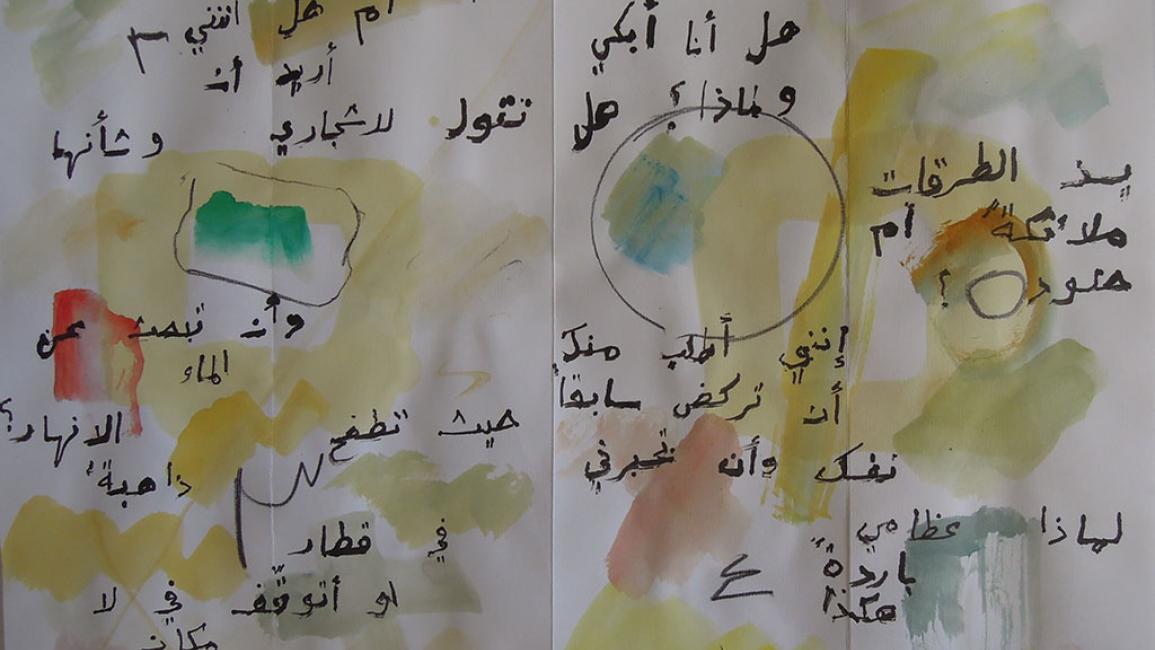 هل أنا أبكي
ولماذا؟ هل
يسند الطرقات
ملائكةٌ أم
جنود؟
إنني أطلب منك
أن تركض سابقاً
نفسك وأن تخبرني
لماذا عظامي
باردةٌ
هكذا
أم هل انني
أريد أن
نقول لاشجاري وشأنها
وأن تبحث عن
الماء
حيث تطفح الانهار؟
ذاهبةً
في قطار
لو أتوقّف في لا
مكان